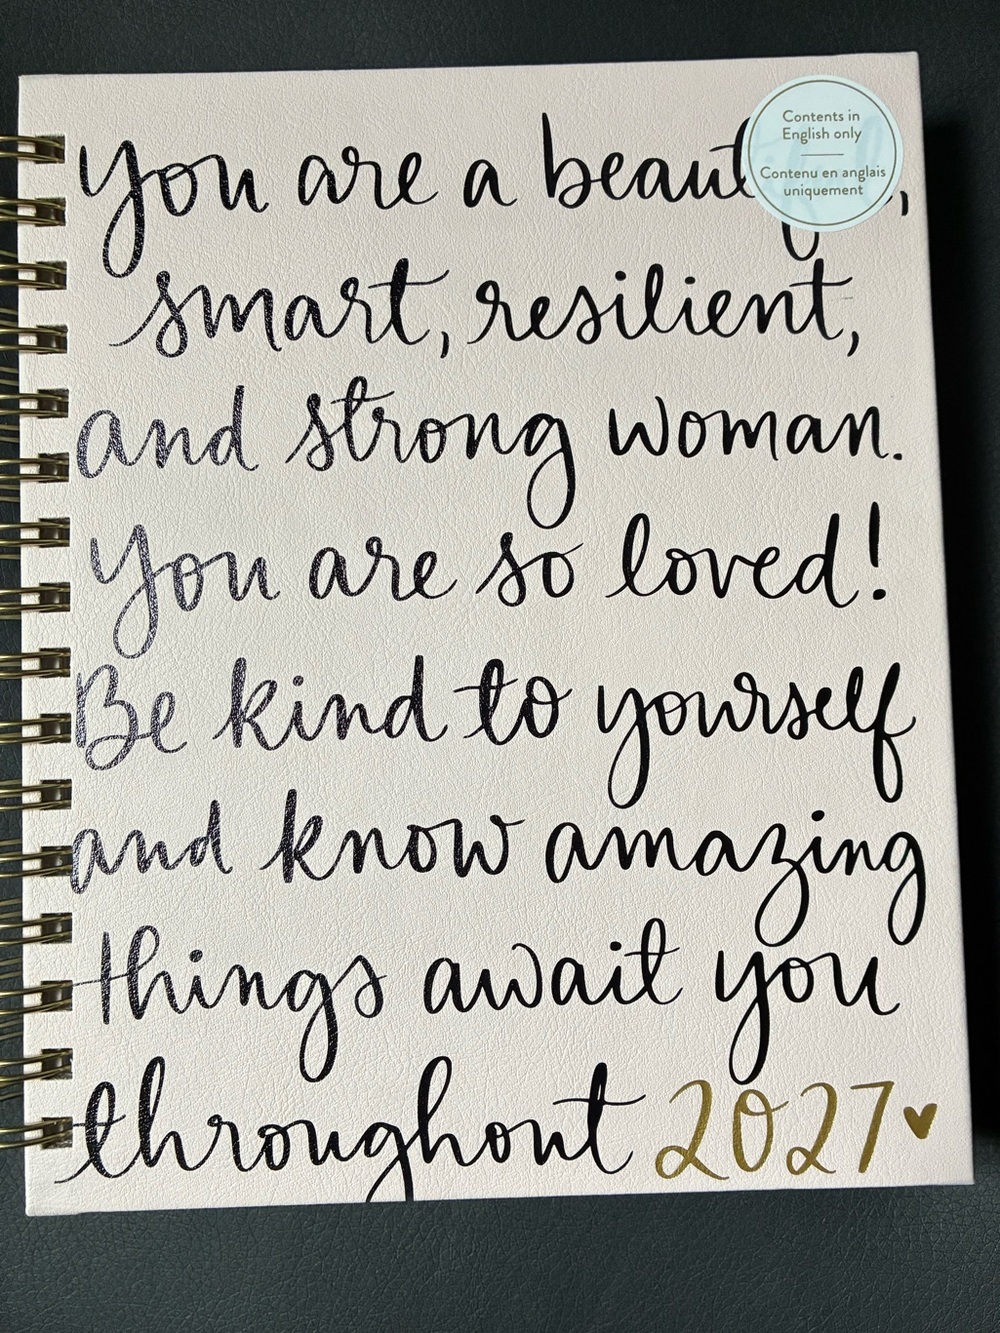 you are a beautiful,
smart, resilient,
and strong woman.
You are so loved!
Be kind to yourself
and know amazing
things await you
throughout 2027
Contents in
English only
Contenu en anglais
uniquement